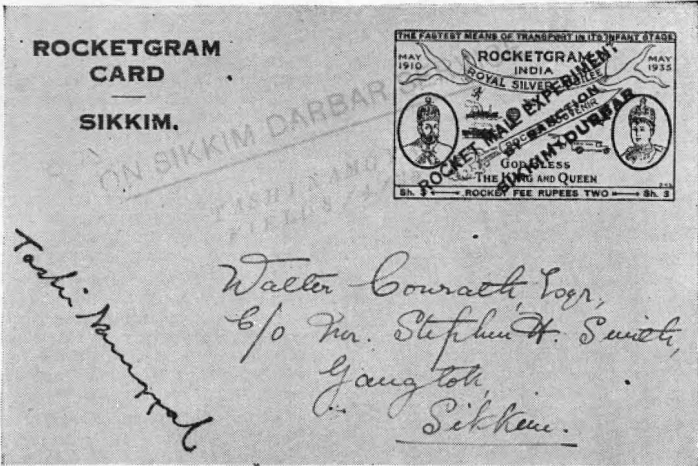 ROCKETGRAM
CARD
SIKKIM.
ON SIKKIM DARBAR
TASHI NAMGY
FIELDS
THE FASTEST MEANS OF TRANSPORT IN ITS INFANT STAGE
MAY
1910
ROCKETGRAM
INDIA
ROYAL SILVER JUBILEE
MAY
1935
ROCKET MAIL EXPERIMENT
BY SANCTION
SIKKIM DURBAR
GOD BLESS
THE KING AND QUEEN
Sh. 3
ROCKET FEE RUPEES TWO
Sh. 3
Tashi Namgyal
Walter Conrath, Esqr,
C/o Mr. Stephen H. Smith,
Gangtok,
Sikkim.